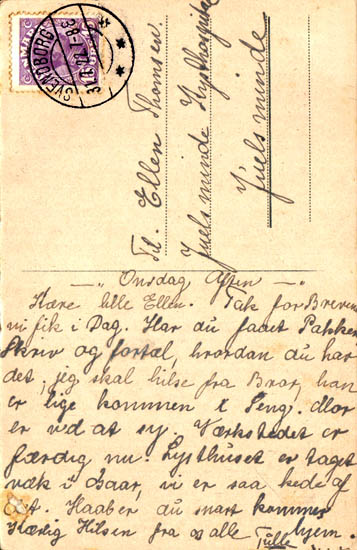 DANMARK
SVENDBORG
31.8.22.7-8.
Til. Ellen Thomsen.
Juelsminde Kysthospital
Juelsminde
Onsdag Aften
Kære lille Ellen. Tak for Breven
vi fik i Dag. Har du faaet Pakken
Skriv og fortæl, hvordan du har
det, jeg skal hilse fra Bror, han
er lige kommen i Seng. Mor
er ved at sy. Værkstedet er
færdig nu. Lysthuset er taget
væk i Gaar, vi er saa kede af
det. Haaber du snart kommer
hjem.
Kærlig Hilsen fra os alle Tulle